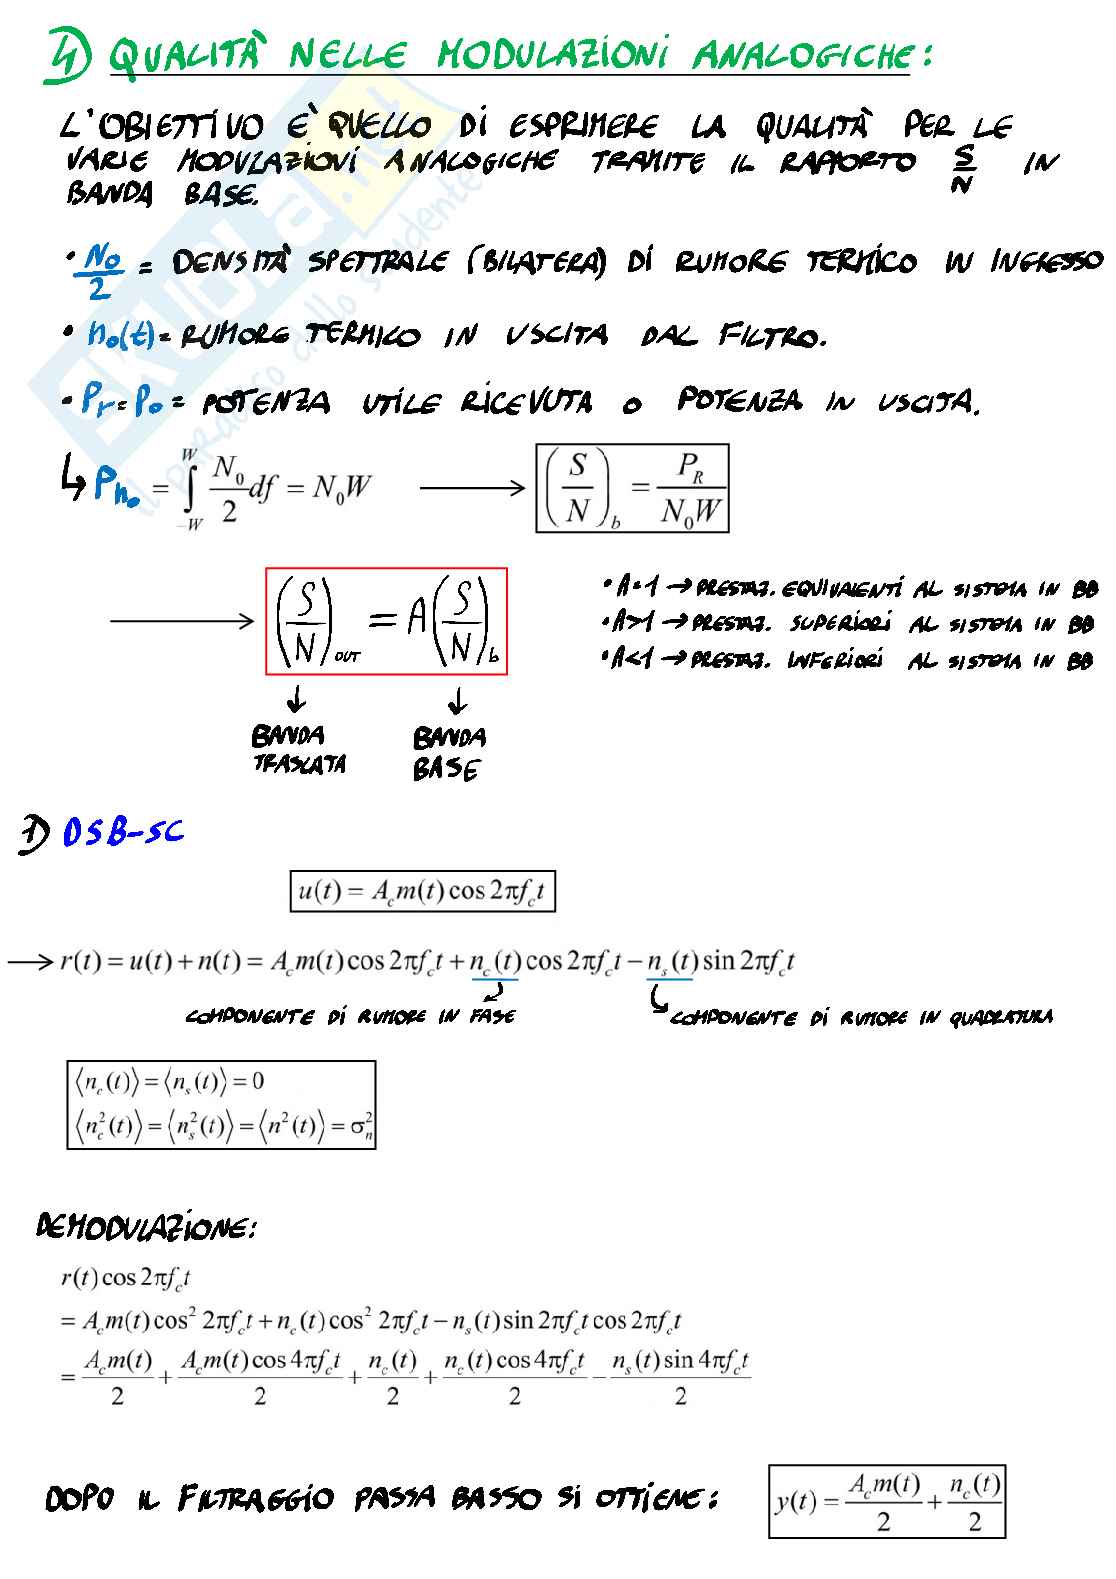 4) QUALITÀ NELLE MODULAZIONI ANALOGICHE:
L'OBIETTIVO È QUELLO DI ESPRIMERE LA QUALITÀ PER LE
VARIE MODULAZIONI ANALOGICHE TRAMITE IL RAPPORTO S/N IN
BANDA BASE.
• N₀/2 = DENSITÀ SPETTRALE (BILATERA) DI RUMORE TERMICO IN INGRESSO
• n₀(t) = RUMORE TERMICO IN USCITA DAL FILTRO.
• Pr = P₀ = POTENZA UTILE RICEVUTA O POTENZA IN USCITA.
↳ Pn₀ = ∫_{-W}^{W} N₀/2 df = N₀W → (S/N)_b = P_R/(N₀W)
→ (S/N)_OUT = A (S/N)_b
• A=1 → PRESTAZ. EQUIVALENTI AL SISTEMA IN BB
• A>1 → PRESTAZ. SUPERIORI AL SISTEMA IN BB
• A<1 → PRESTAZ. INFERIORI AL SISTEMA IN BB
↓ ↓
BANDA TRASLATA BANDA BASE
1) DSB-SC
u(t) = A_c m(t) cos 2πf_c t
→ r(t) = u(t) + n(t) = A_c m(t) cos 2πf_c t + n_c(t) cos 2πf_c t − n_s(t) sin 2πf_c t
COMPONENTE DI RUMORE IN FASE COMPONENTE DI RUMORE IN QUADRATURA
⟨n_c(t)⟩ = ⟨n_s(t)⟩ = 0
⟨n_c²(t)⟩ = ⟨n_s²(t)⟩ = ⟨n²(t)⟩ = σ_n²
DEMODULAZIONE:
r(t) cos 2πf_c t
= A_c m(t) cos² 2πf_c t + n_c(t) cos² 2πf_c t − n_s(t) sin 2πf_c t cos 2πf_c t
= A_c m(t)/2 + A_c m(t) cos 4πf_c t/2 + n_c(t)/2 + n_c(t) cos 4πf_c t/2 − n_s(t) sin 4πf_c t/2
DOPO IL FILTRAGGIO PASSA BASSO SI OTTIENE: y(t) = A_c m(t)/2 + n_c(t)/2
SKUOLA.net
il paradiso dello studente